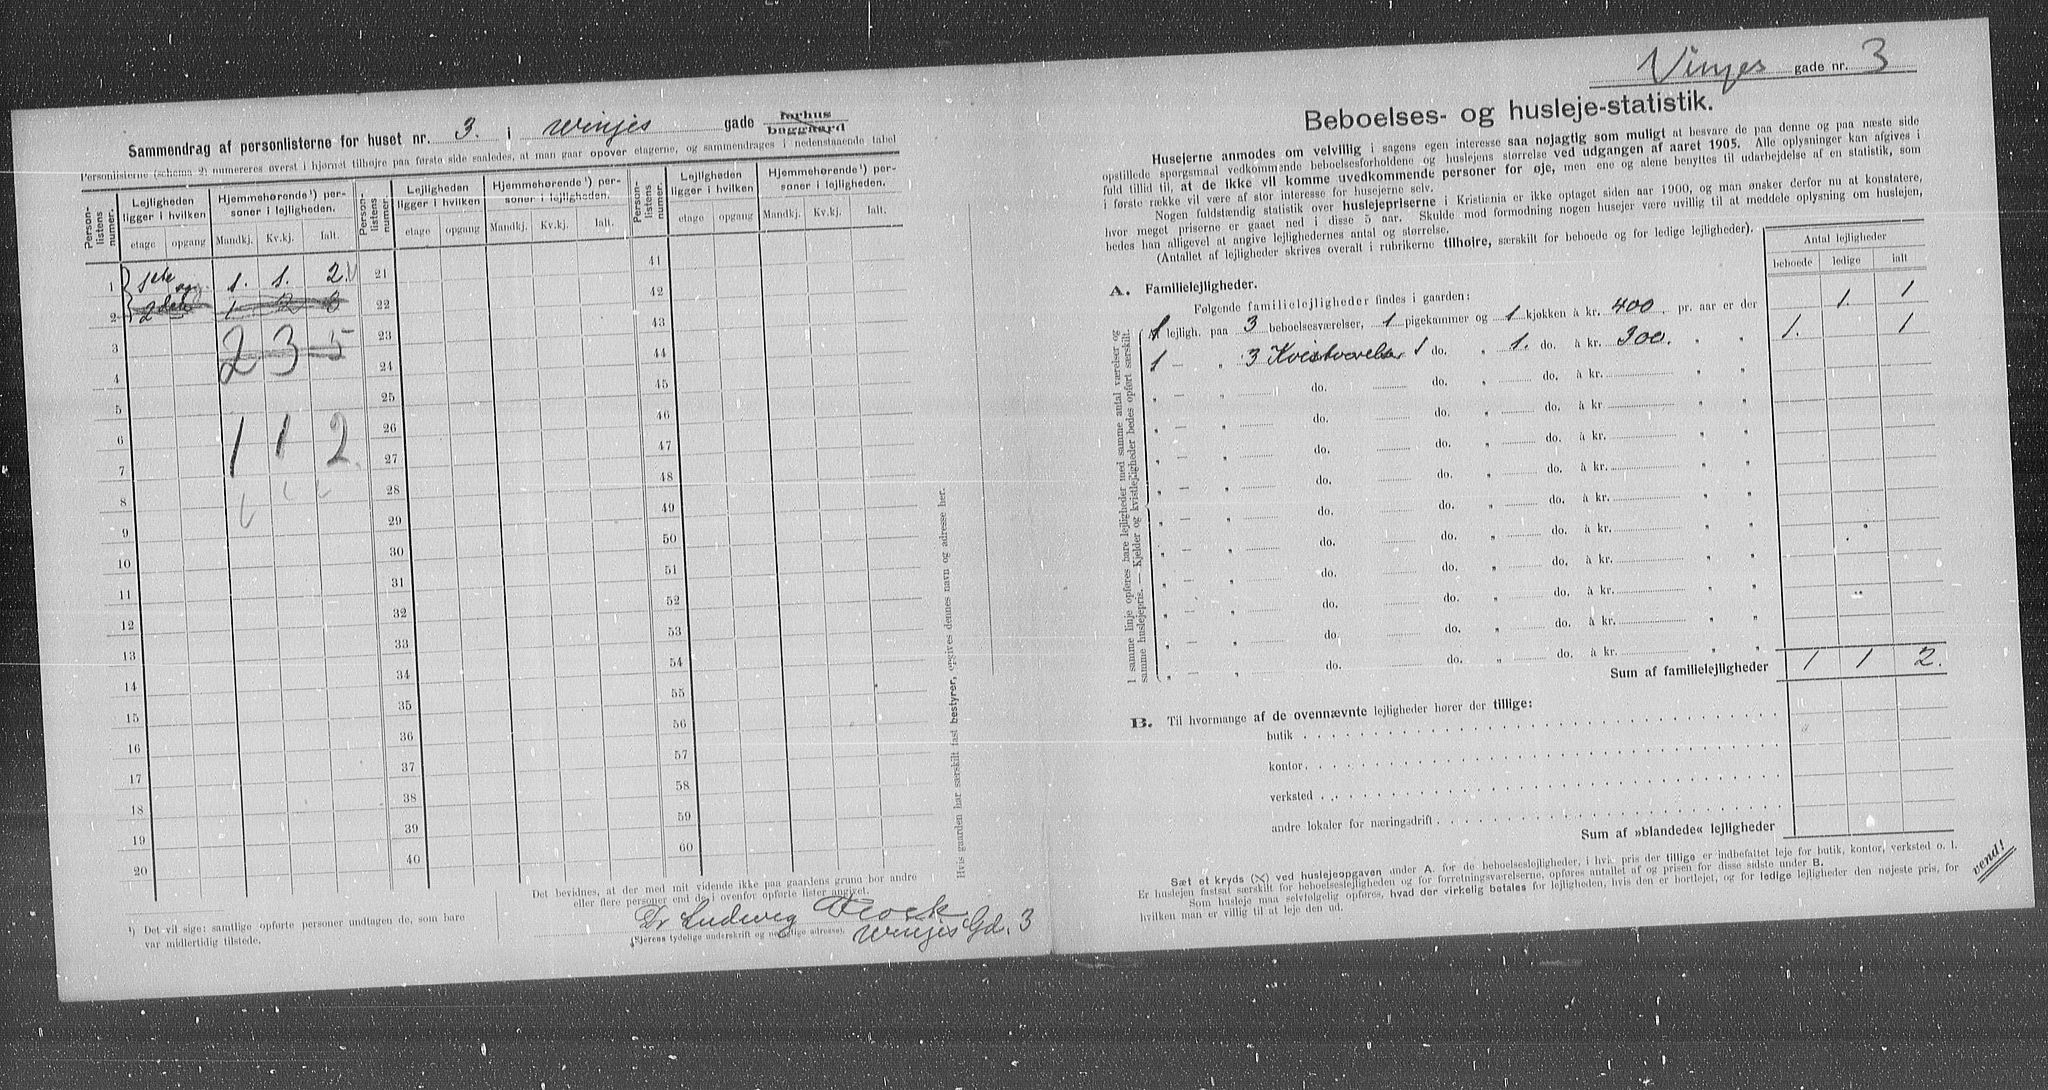 Sammendrag af personlisterne for huset nr. 3. i Winjes gade forhus baggaard
Personlisterne (schema 2) numereres øverst i hjørnet tilhøjre paa første side saaledes, at man gaar opover etagerne, og sammendrages i nedenstaaende tabel
Person-listens nummer. Lejligheden ligger i hvilken Hjemmehørende¹) per-soner i lejligheden. Person-listens nummer. Lejligheden ligger i hvilken Hjemmehørende¹) per-soner i lejligheden. Person-listens nummer. Lejligheden ligger i hvilken Hjemmehørende¹) per-soner i lejligheden.
etage opgang Mandkj. Kv.kj. Ialt. etage opgang Mandkj. Kv.kj. Ialt. etage opgang Mandkj. Kv.kj. Ialt.
1 1ste og 1. 1. 2. 21 41
2 2den 1 2 3 22 42
3 2 3 5 23 43
4 24 44
5 25 45
6 1 1 2 26 46
7 27 47
8 28 48
9 29 49
10 30 50
11 31 51
12 32 52
13 33 53
14 34 54
15 35 55
16 36 56
17 37 57
18 38 58
19 39 59
20 40 60
¹) Det vil sige: samtlige opførte personer undtagen de, som bare
var midlertidig tilstede.
Det bevidnes, at der med mit vidende ikke paa gaardens grund bor andre
eller flere personer end de i ovenfor opførte lister angivet.
Dr Ludwig
(Ejerens tydelige underskrift og nøjagtige adresse).
Winjes Gd. 3
Hvis gaarden har særskilt fast bestyrer, opgives dennes navn og adresse her.
Vinjes gade nr. 3
Beboelses- og husleje-statistik.
Husejerne anmodes om velvillig i sagens egen interesse saa nøjagtig som muligt at besvare de paa denne og paa næste side
opstillede spørgsmaal vedkommende beboelsesforholdene og huslejens størrelse ved udgangen af aaret 1905. Alle oplysninger kan afgives i
fuld tillid til, at de ikke vil komme uvedkommende personer for øje, men ene og alene benyttes til udarbejdelse af en statistik, som
i første række vil være af stor interesse for husejerne selv.
Nogen fuldstændig statistik over huslejepriserne i Kristiania er ikke optaget siden aar 1900, og man ønsker derfor nu at konstatere,
hvor meget priserne er gaaet ned i disse 5 aar. Skulde mod formodning nogen husejer være uvillig til at meddele oplysning om huslejen,
bedes han alligevel at angive lejlighedernes antal og størrelse.
(Antallet af lejligheder skrives overalt i rubrikerne tilhøjre, særskilt for beboede og for ledige lejligheder).
Antal lejligheder
beboede ledige ialt
A. Familielejligheder.
Følgende familielejligheder findes i gaarden:
1 lejligh. paa 3 beboelsesværelser, 1 pigekammer og 1 kjøkken à kr. 400 pr. aar er der 1. 1
1 — „ 3 Kvistværelser 1 do. „ 1. do. à kr. 300. „ „ 1. 1
„ — „ do. do. „ do. à kr. „ „
„ — „ do. do. „ do. à kr. „ „
„ — „ do. do. „ do. à kr. „ „
„ — „ do. do. „ do. à kr. „ „
„ — „ do. do. „ do. à kr. „ „
„ — „ do. do. „ do. à kr. „ „
„ — „ do. do. „ do. à kr. „ „
„ — „ do. do. „ do. à kr. „ „
„ — „ do. do. „ do. à kr. „ „
„ — „ do. do. „ do. à kr. „ „
I samme linje opføres bare lejligheder med samme antal værelser og
samme huslejepris. — Kjelder og kvistlejligheder bedes opført særskilt.
Sum af familielejligheder 1 1 2.
B. Til hvormange af de ovennævnte lejligheder hører der tillige:
butik
kontor
verksted
andre lokaler for næringsdrift
Sum af »blandede« lejligheder
Sæt et kryds (X) ved huslejeopgaven under A. for de beboelseslejligheder, i hvis pris der tillige er indbefattet leje for butik, kontor, verksted o. l.
Er huslejen fastsat særskilt for beboelseslejligheder og for forretningsværelserne, opføres antallet af og prisen for disse sidste under B.
Som husleje maa selvfølgelig opføres, hvad der virkelig betales for lejligheden, hvis den er bortlejet, og for ledige lejligheder den nøjeste pris, for
hvilken man er villig til at leje den ud.
vend!